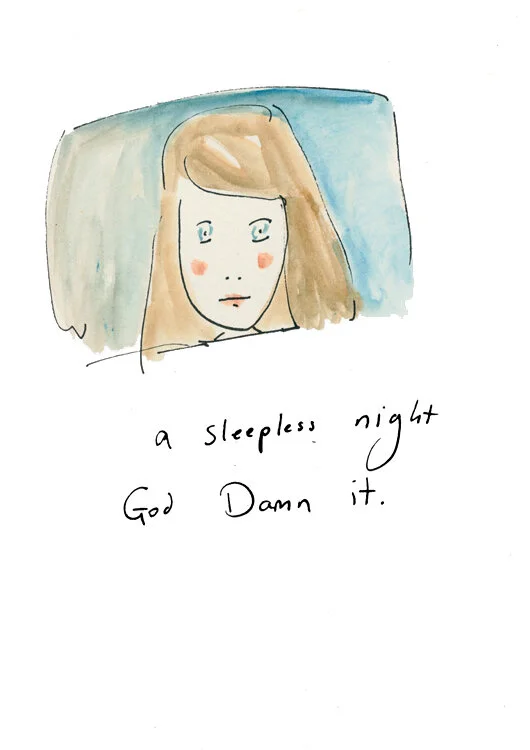 a sleepless night
God Damn it.